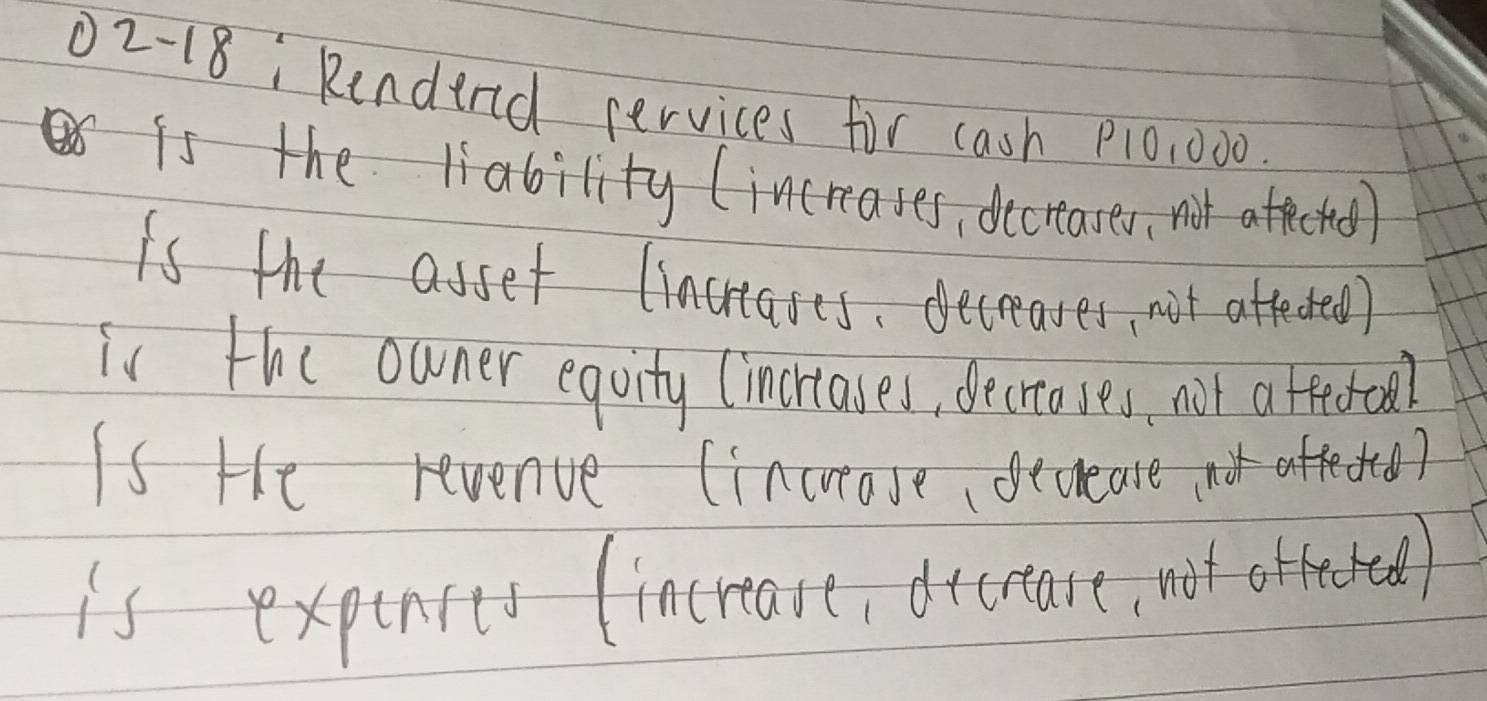 02-18; Rendered services for cash P10,000.
is the liability (increases, decreases, not affected)
is the asset (increases, decreases, not affected)
is the owner equity (increases, decreases, not affected)
Is the revenue (increase, decrease, not affected)
is expenses (increase, decrease, not affected)